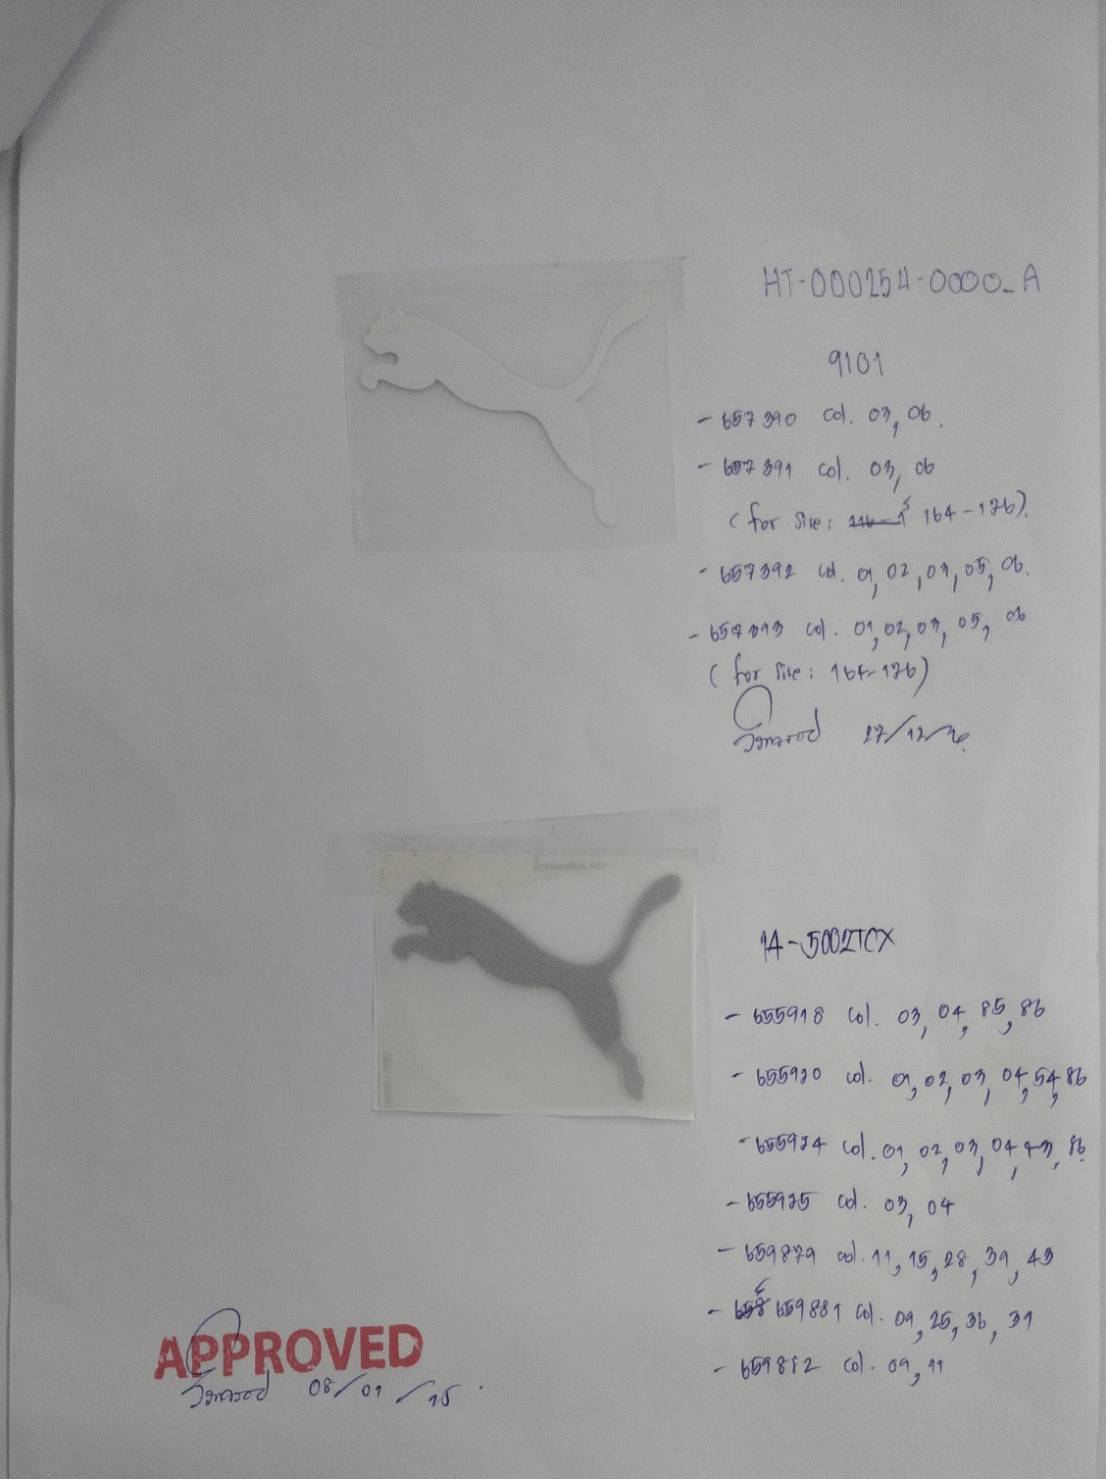 HT-000254-0000-A
9101
- 657390 col. 03, 06.
- 657391 col. 03, 06
(for size: 164-176).
- 657392 col. 01, 02, 03, 05, 06.
- 657393 col. 01, 02, 03, 05, 06
(for size: 164-176)
27/12/
14-5002TCX
- 655918 col. 03, 04, 85, 86
- 655920 col. 01, 02, 03, 04, 54, 86
- 655924 col. 01, 02, 03, 04, 43, 86
- 655925 col. 03, 04
- 659879 col. 11, 15, 28, 39, 43
- 659881 col. 09, 25, 36, 39
- 659882 col. 09, 11
APPROVED
08/01/25.